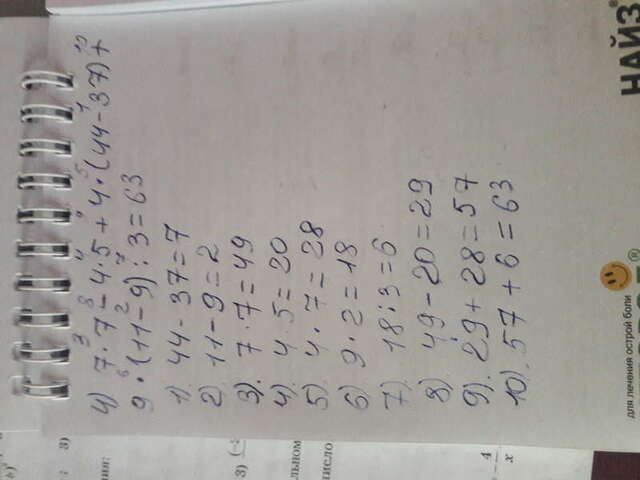 4) 7·7-4·5+4·(44-37)+
9·(11-9):3=63
1). 44-37=7
2) 11-9=2
3). 7·7=49
4). 4·5=20
5). 4·7=28
6) 9·2=18
7) 18:3=6
8) 49-20=29
9). 29+28=57
10). 57+6=63
для лечения острой боли
НАЙЗ®
8)
число
льном
4
x